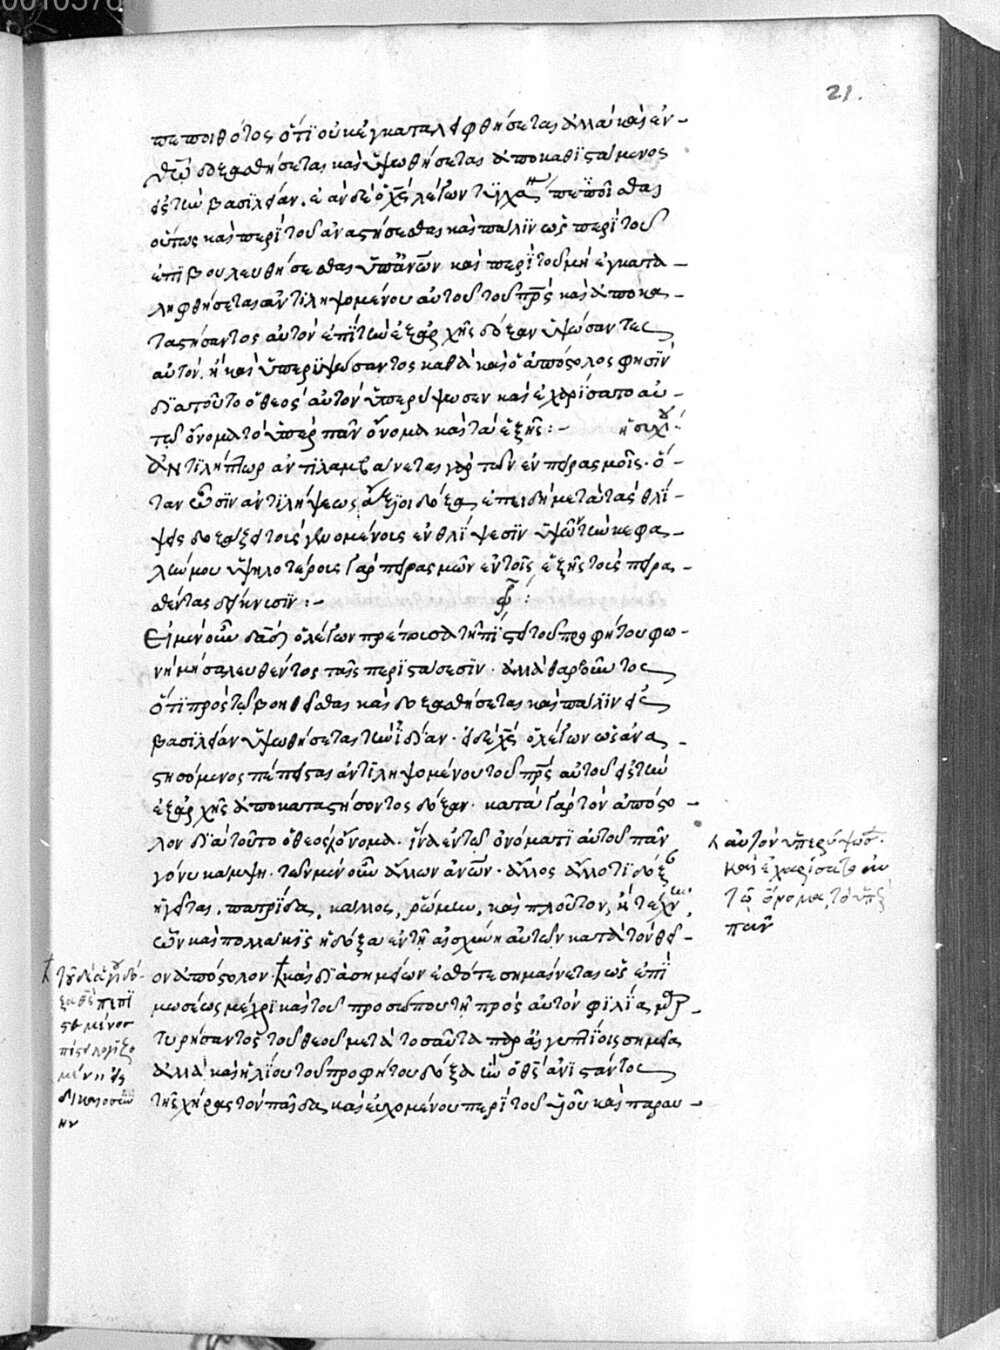 21.
πεποιθότος ὅτι οὐκ ἐγκαταλειφθήσεται ἀλλὰ καὶ ἐν-
δοξασθήσεται καὶ ὑψωθήσεται ἀποκαθιστάμενος
εἰς τὴν βασιλείαν. ἐὰν δὲ ὁ χς λέγων πεποῖσθαι
οὕτως καὶ περὶ τοῦ ἀναστήσεσθαι καὶ πάλιν ὡς περὶ τοῦ
ἐπιβουλευθήσεσθαι ὑπ' ἀνων καὶ περὶ τοῦ μὴ ἐγκατα-
ληφθήσεται ἀντιληψομένου αὐτοῦ τοῦ πρς καὶ ἀποκα-
ταστήσαντος αὐτὸν ἐπὶ τὴν ἐξ ἀρχῆς δόξαν ὑψώσαντες
αὐτόν. ἢ καὶ ὑπερυψώσαντος καθὰ καὶ ὁ ἀπόστολος φησὶν
διὰ τοῦτο ὁ θεὸς αὐτὸν ὑπερύψωσεν καὶ ἐχαρίσατο αὐ-
τῷ ὄνομα τὸ ὑπὲρ πᾶν ὄνομα καὶ τὰ ἑξῆς :- ἡσυχί:
Ἀντιλήπτωρ ἀντιλαμβάνεται γὰρ τῶν ἐν πειρασμοῖς. ὅ-
ταν ὦσιν ἀντιλήψεως ἄξιοι δόξα, ἐπειδὴ μετὰ τὰς θλί-
ψεις δοξάζει τοὺς γενομένους ἐν θλίψεσιν ὑψῶν τὴν κεφα-
λήν μου ὑψηλοτέροις γὰρ πειρασμῶν ἐν τοῖς ἑξῆς τοὺς πειρα-
σθέντας δείκνυσιν :-
Εἰ μὲν οὖν δαδ ὁ λέγων πρέποισα τῇ πίστει τοῦ προφήτου φω-
νὴ μὴ σαλευθέντος ταῖς περιστάσεσιν. ἀλλὰ θαρροῦντος
ὅτι πρὸς τῷ βοηθεῖσθαι καὶ δοξασθήσεται καὶ πάλιν εἰς
βασιλείαν ὑψωθήσεται τὴν ἰδίαν. εἰ δὲ χς ὁ λέγων ὡς ἀνα-
στησόμενος πέπεισται ἀντιληψομένου τοῦ πρς αὐτοῦ εἰς τὴν
ἐξ ἀρχῆς ἀποκαταστήσοντος δόξαν. κατὰ γὰρ τὸν ἀπόστο-
λον διὰ τοῦτο ὁ θεὸς ὄνομα. ἵνα ἐν τῷ ὀνόματι αὐτοῦ πᾶν
γόνυ κάμψῃ. τῶν μὲν οὖν ἄλλων ἀνων. ἄλλος ἄλλο τι δόξαν
ἡγεῖται, πατρίδα, κάλλος, ῥώμην, καὶ πλοῦτον, ἢ τέχνην,
ὧν καὶ πολλάκις ἡ δόξα ἐν τῇ αἰσχύνῃ αὐτῶν κατὰ τὸν θεῖ-
ον ἀπόστολον. καὶ διὰ σημείων ἔσθ' ὅτε σημαίνεται ὡς ἐπὶ
μωσέως μέχρι καὶ τοῦ προσώπου τῇ πρὸς αὐτὸν φιλίᾳ μαρ-
τυρήσαντος τοῦ θεοῦ μετὰ τοσαῦτα παρ' αἰγυπτίοις σημεῖα
ἀλλὰ καὶ ἡλίου τοῦ προφήτου δόξα ἦν ὁ θς ἀνιστάντος
τῆς χήρας τὸν παῖδα, καὶ εὐχομένου περὶ τοῦ ὑετοῦ καὶ παραυ-
αὐτὸν ὑπερύψωσε.
καὶ ἐχαρίσατο αὐ
τῷ ὄνομα, τὸ ὑπὲρ
πᾶν
τοῦ δὲ ἁγίου δό-
ξα θς πεπι
στευμένος
πίστις λογιζο
μένη εἰς
δικαιοσύν
ην